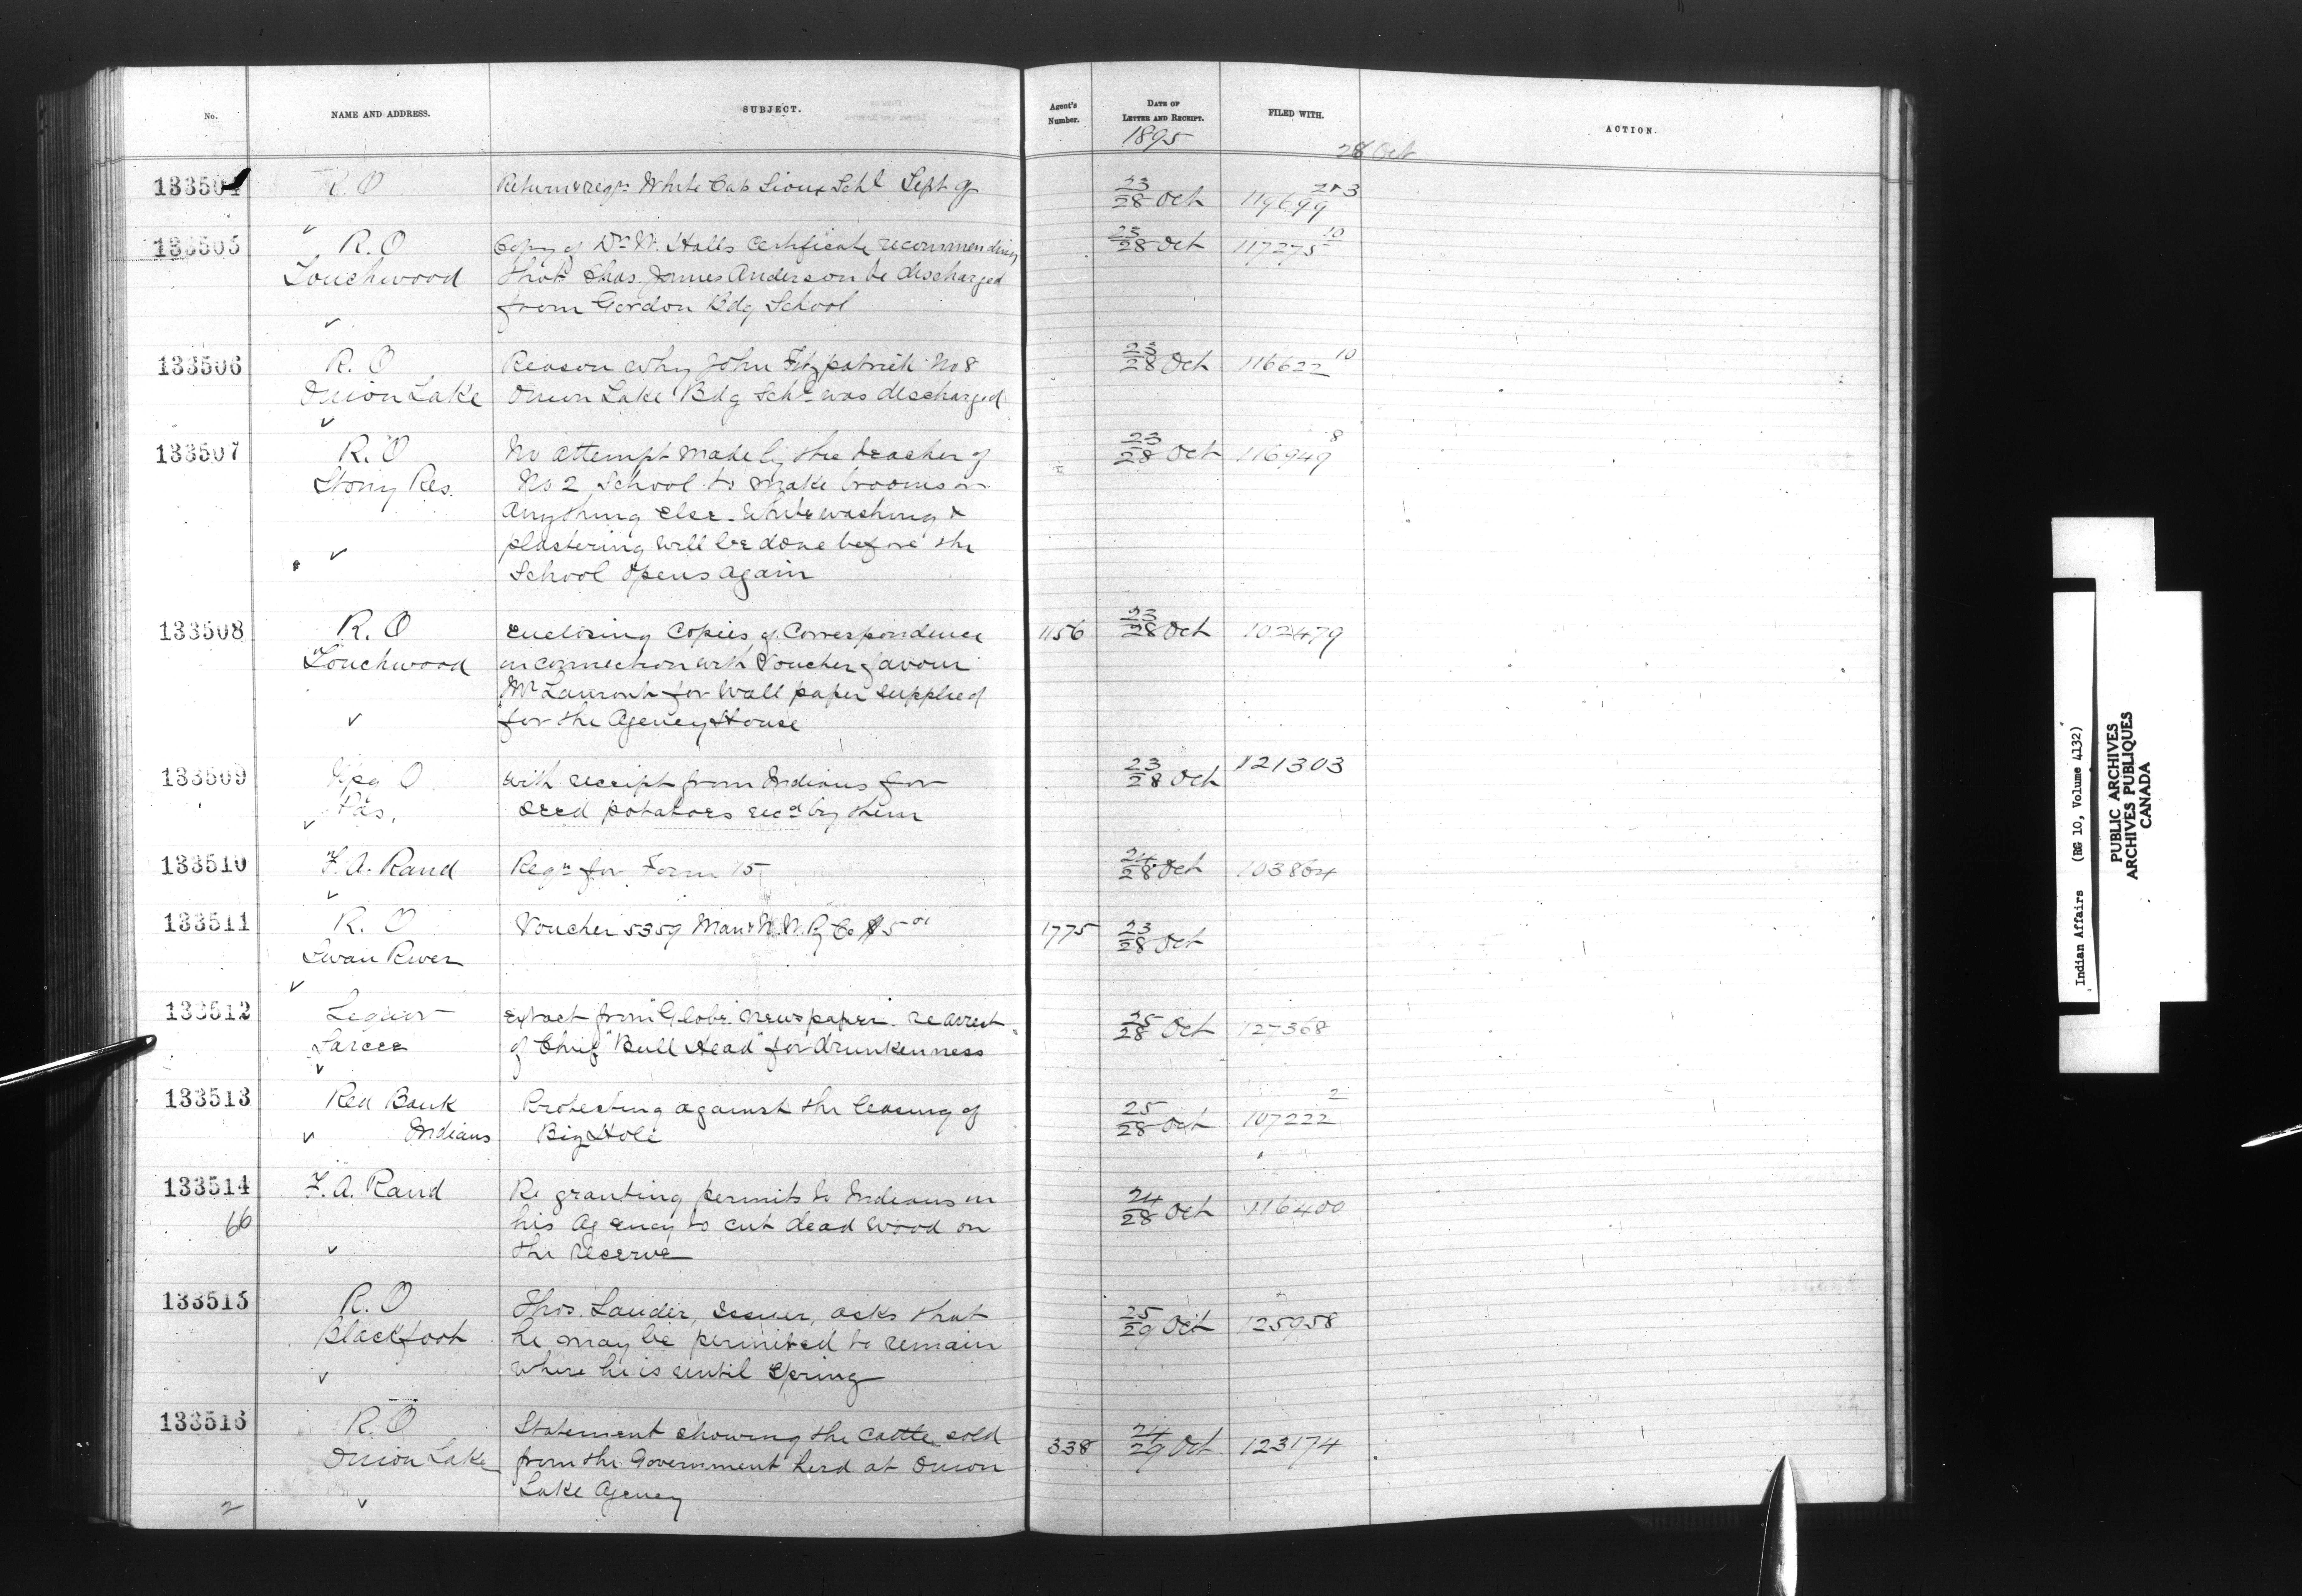 No. NAME AND ADDRESS. SUBJECT. Agent's Number. DATE OF LETTER AND RECEIPT. FILED WITH. ACTION.
1895
28 Oct
133504 R.O Return & reqn White Cap Sioux Schl Sept qr 23/28 Oct 119699 2&3
133505 R.O Copy of Dr W. Halls certificate recommending 23/28 Oct 117275 10
Touchwood that Chas. James Anderson be discharged
from Gordon Bdg School
133506 R.O Reason why John Fitzpatrick No 8 23/28 Oct 116622 10
Onion Lake Onion Lake Bdg Schl was discharged
133507 R.O No attempt made by the teacher of 23/28 Oct 116949 8
Stony Res. No 2 School to make brooms or
anything else. Whitewashing &
plastering will be done before the
School opens again
133508 R.O Enclosing Copies of Correspondence 1156 23/28 Oct 102479
Touchwood in connection with Voucher favour
for wall paper supplied
for the Agency House
133509 Wpg O with receipt from Indians for 23/28 Oct 121303
Pas. seed potatoes recd by them
133510 F.A. Rand Reqn for Form 15 24/28 Oct 103864
133511 R.O Voucher 5359 Man & N.W. Ry Co $5 01 1775 23/28 Oct
Swan River
133512 Extract from "Globe" newspaper re arrest 25/28 Oct 127368
Sarcee of Chief "Bull Head" for drunkenness
133513 Red Bank Protesting against the leasing of 25/28 Oct 107222 2
Indians Big Hole
133514 F.A. Rand Re granting permits to Indians in 24/28 Oct 116400
66 his Agency to cut dead wood on
the reserve
133515 R.O Thos. Lauder, issuer, asks that 25/29 Oct 125958
Blackfoot he may be permitted to remain
where he is until Spring
133516 R.O Statement showing the cattle sold 338 24/29 Oct 123174
Onion Lake from the Government herd at Onion
2 Lake Agency
Indian Affairs (RG 10, Volume 4132)
PUBLIC ARCHIVES
ARCHIVES PUBLIQUES
CANADA